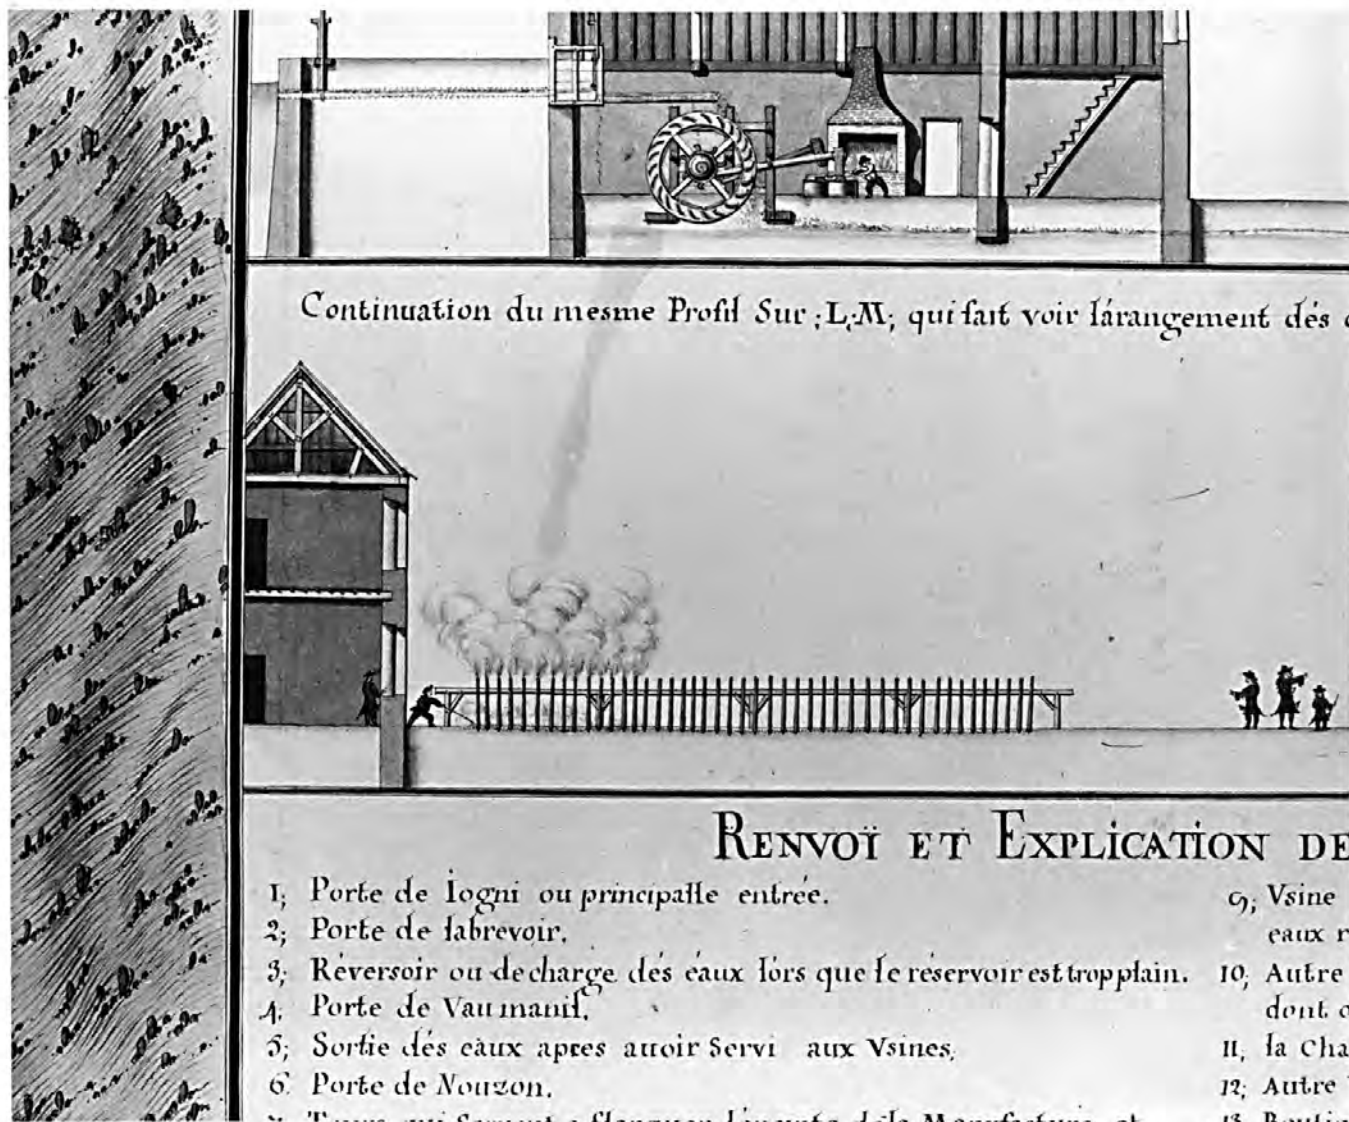 Continuation du mesme Profil Sur ; L ; M ; qui fait voir lárangement dés
RENVOÏ ET EXPLICATION DE
1; Porte de Iogni ou principalle entrée.
2; Porte de labrevoir.
3; Réversoir ou decharge dés éaux lórs que le réservoir est trop plain.
4; Porte de Vaumanil.
5; Sortie dés eàux apres auoir Servi aux Vsines.
6 Porte de Nouzon.
9; Vsine
eaux r
10; Autre
dont
11; la Cha
12; Autre
13